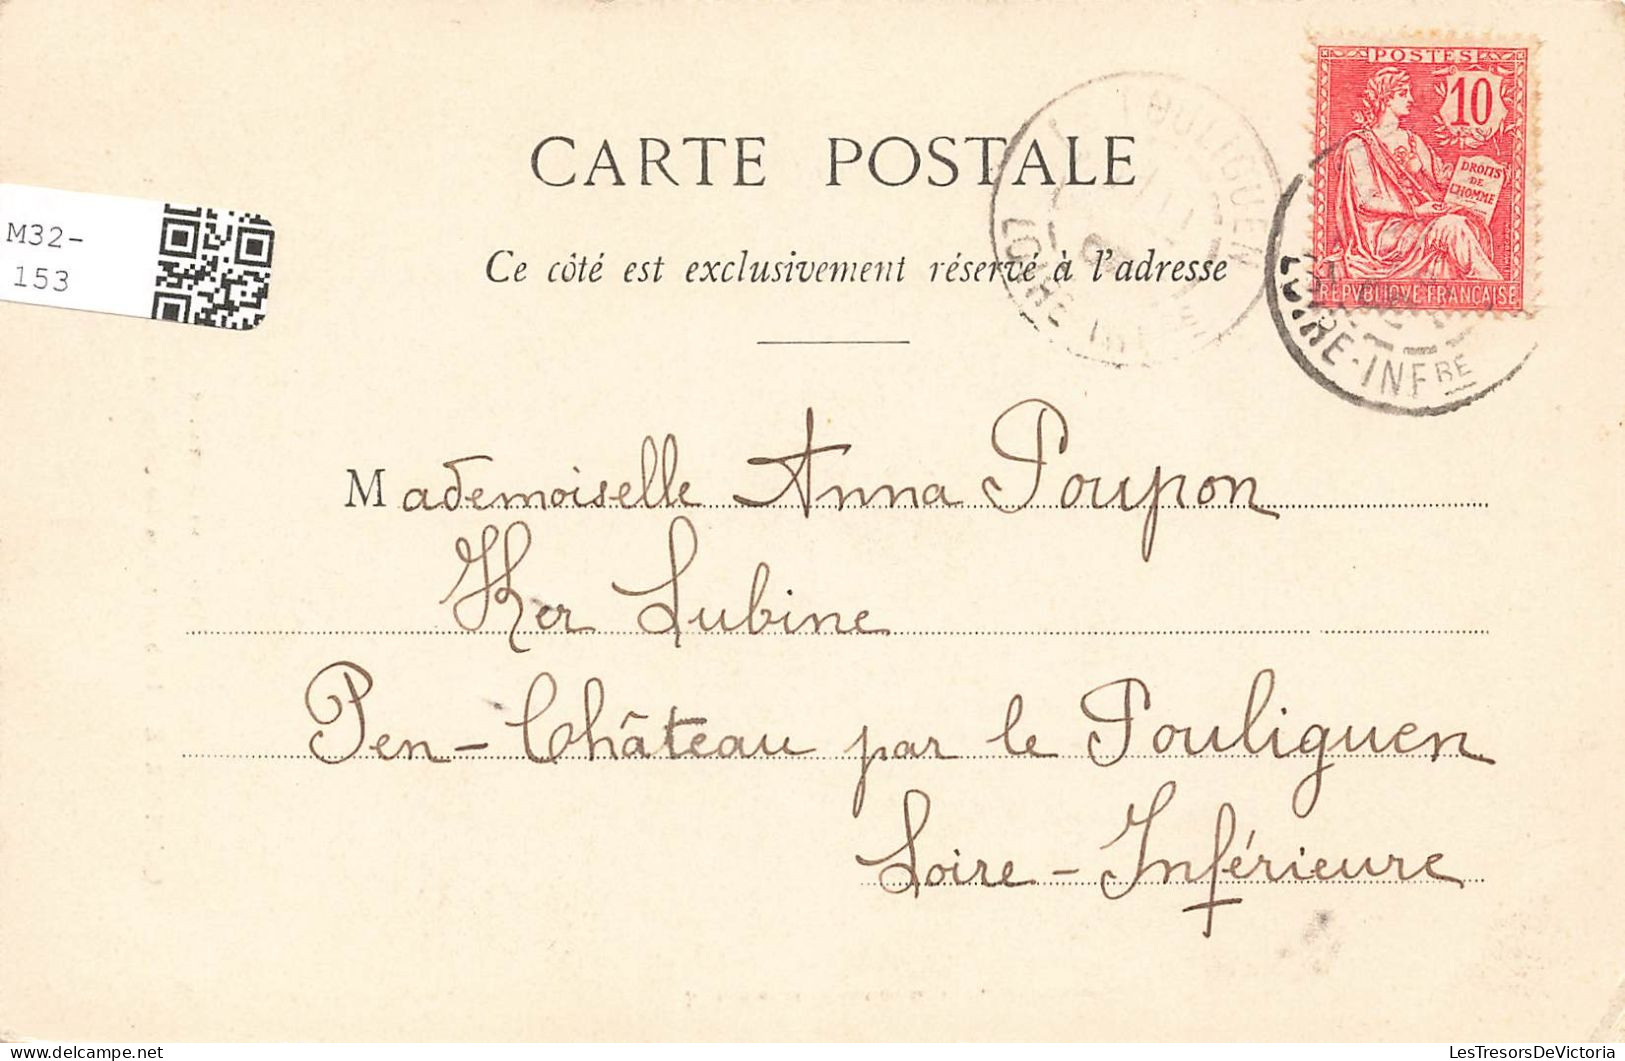 POSTES
10
DROITS
DE
L'HOMME
REPVBLIQUE FRANÇAISE
POULIGUEN
LOIRE INFRE
LOIRE-INFRE
CARTE POSTALE
Ce côté est exclusivement réservé à l'adresse
M32-
153
Mademoiselle Anna Poupon
Ker Lubine
Pen-Château par le Pouliguen
Loire-Inférieure
LesTresorsDeVictoria